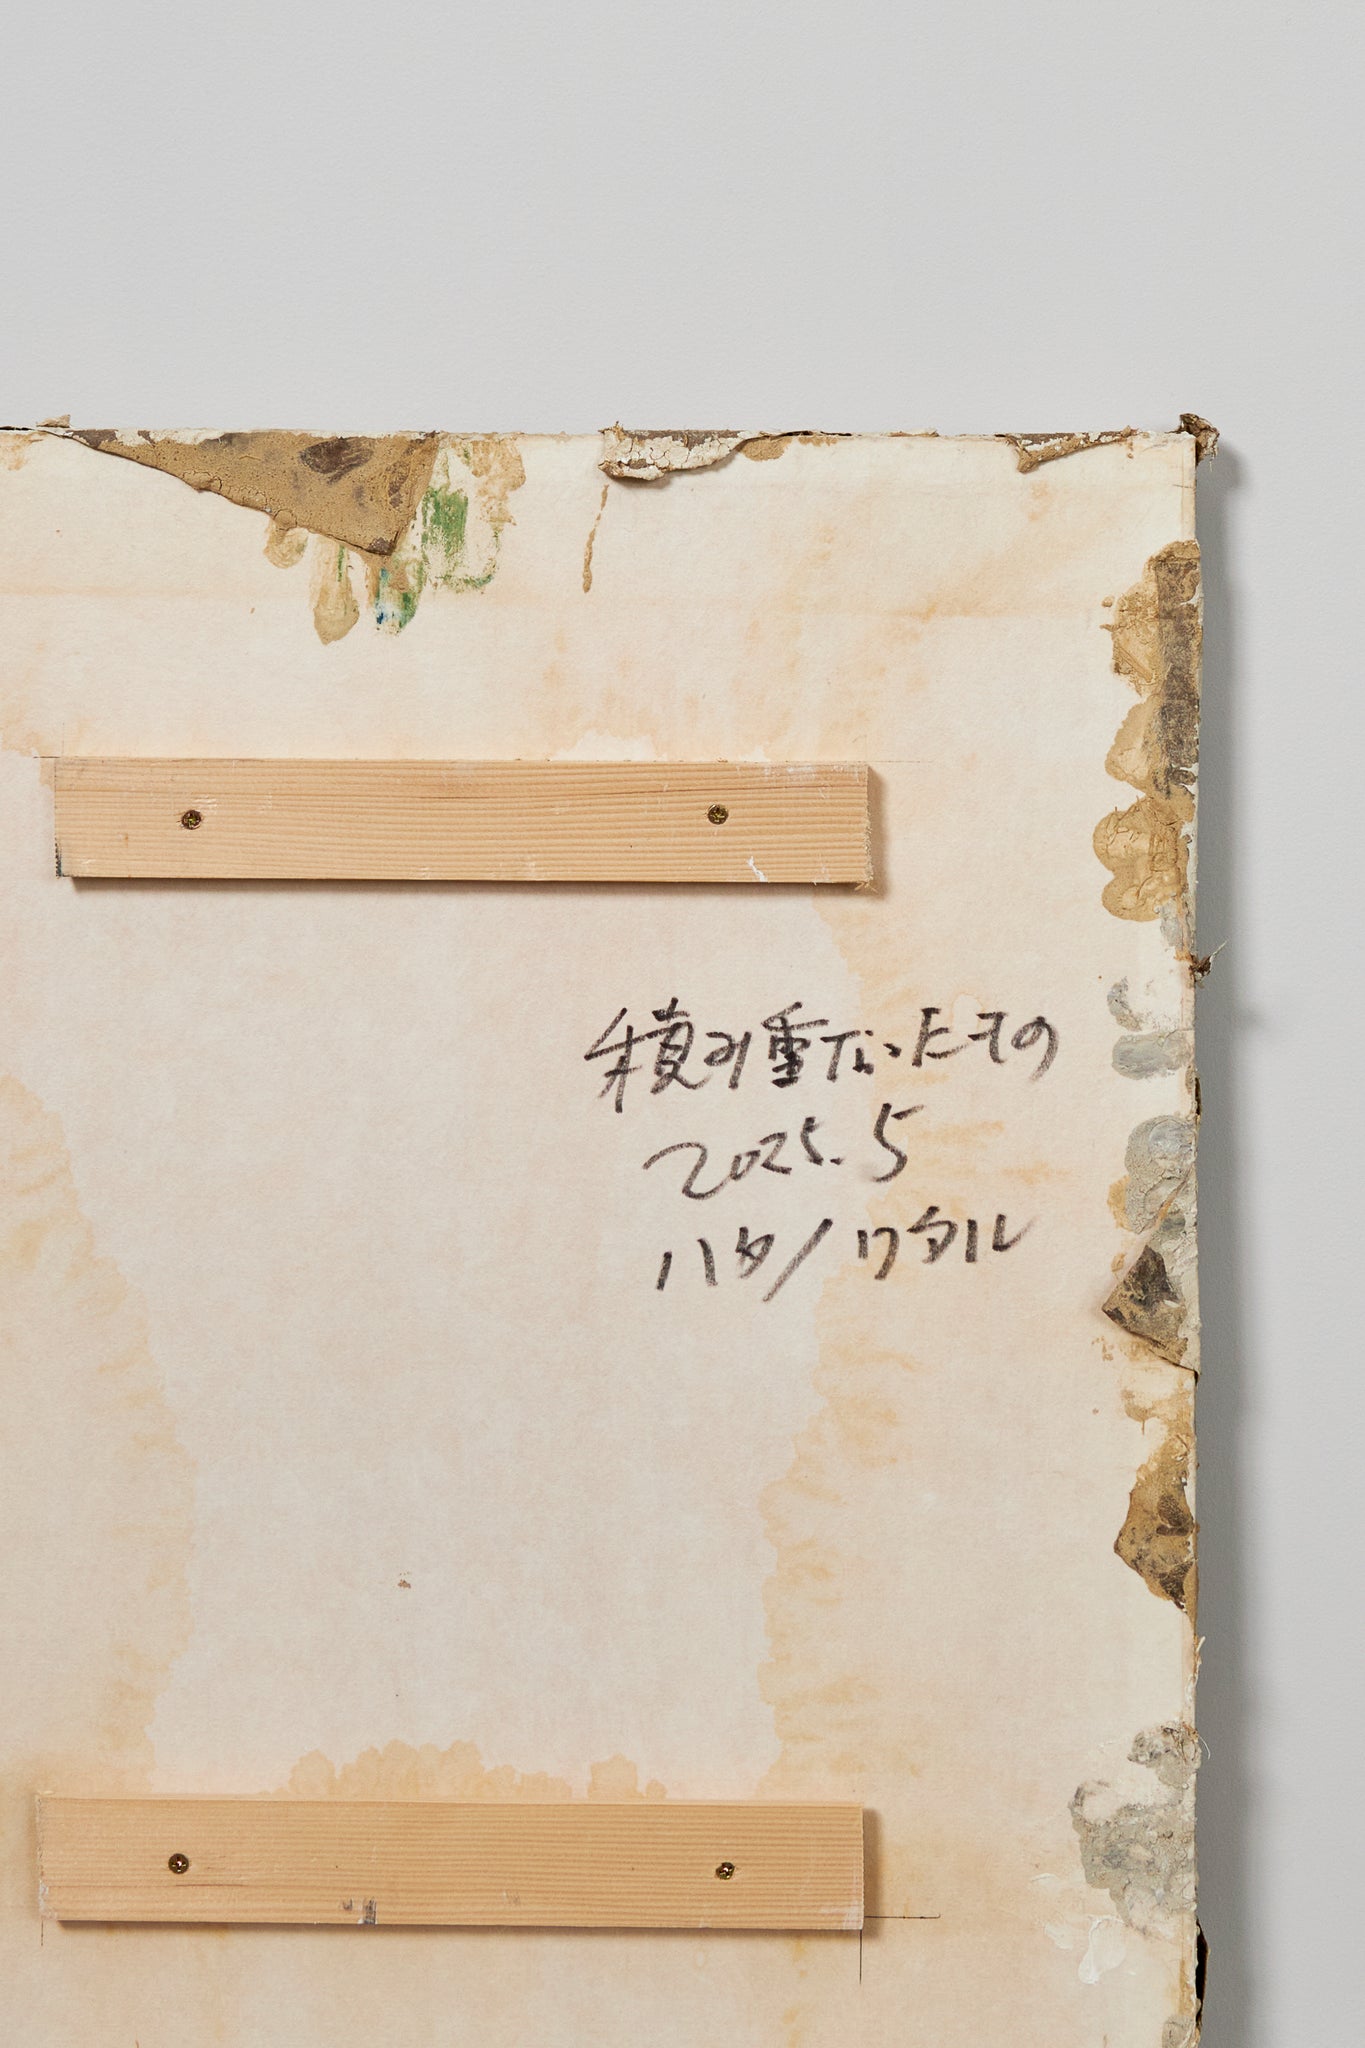 積み重なったもの
2025.5
ハタノワタル